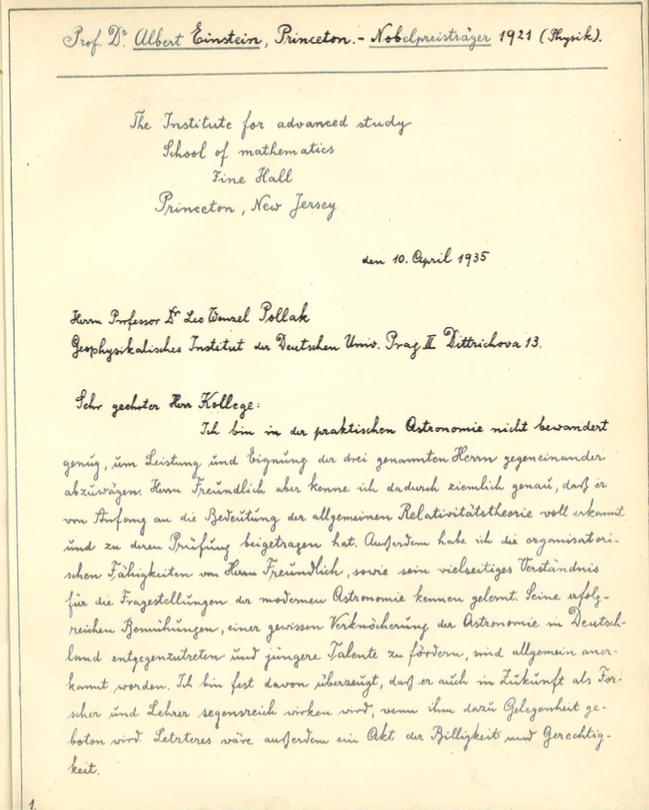 Prof. Dr Albert Einstein, Princeton.- Nobelpreisträger 1921 (Physik).
The Institute for advanced study
School of mathematics
Fine Hall
Princeton, New Jersey
den 10. April 1935
Herrn Professor Dr Leo Wenzel Pollak
Geophysikalisches Institut der Deutschen Univ. Prag II Dittrichova 13.
Sehr geehrter Herr Kollege:
Ich bin in der praktischen Astronomie nicht bewandert
genug, um Leistung und Eignung der drei genannten Herrn gegeneinander
abzuwägen. Herrn Freundlich aber kenne ich dadurch ziemlich genau, daß er
von Anfang an die Bedeutung der allgemeinen Relativitätstheorie voll erkannt
und zu deren Prüfung beigetragen hat. Außerdem habe ich die organisatori-
schen Fähigkeiten von Herrn Freundlich, sowie sein vielseitiges Verständnis
für die Fragestellungen der modernen Astronomie kennen gelernt. Seine erfolg-
reichen Bemühungen, einer gewissen Verknöcherung der Astronomie in Deutsch-
land entgegenzutreten und jüngere Talente zu fördern, sind allgemein aner-
kannt worden. Ich bin fest davon überzeugt, daß er auch in Zukunft als For-
scher und Lehrer segensreich wirken wird, wenn ihm dazu Gelegenheit ge-
boten wird. Letzteres wäre außerdem ein Akt der Billigkeit und Gerechtig-
keit.
1.